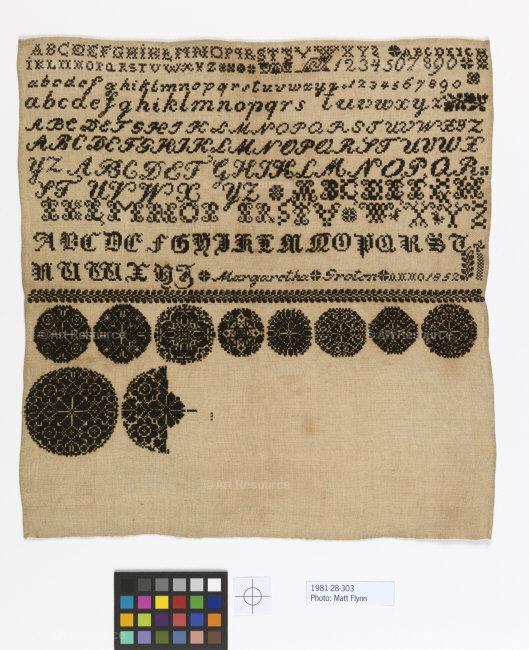 ABCDEFGHIKLMNOPQRSTUVWXYZ ABCDEFGH
IKLMNOPQRSTUVWXYZ 1234567890
abcdefghiklmnopqrstuvwxyz 1234567890
abcdefghiklmnopqrs tuvwxyz
ABCDEFGHIKLMNOPQRSTUVWXYZ
ABCDEFGHIKLMNOPQRSTUVWX
YZ ABCDEFGHIKLMNOPQR
ST UVWX YZ ABCDEFGH
IKLMNOP QRSTV W XYZ
ABCDEFGHIKLMNOPQRST
UVWXYZ Margaretha Groton anno 1852
© Art Resource
© Art Resource
© Art Resource
1981-28-303
Photo: Matt Flynn